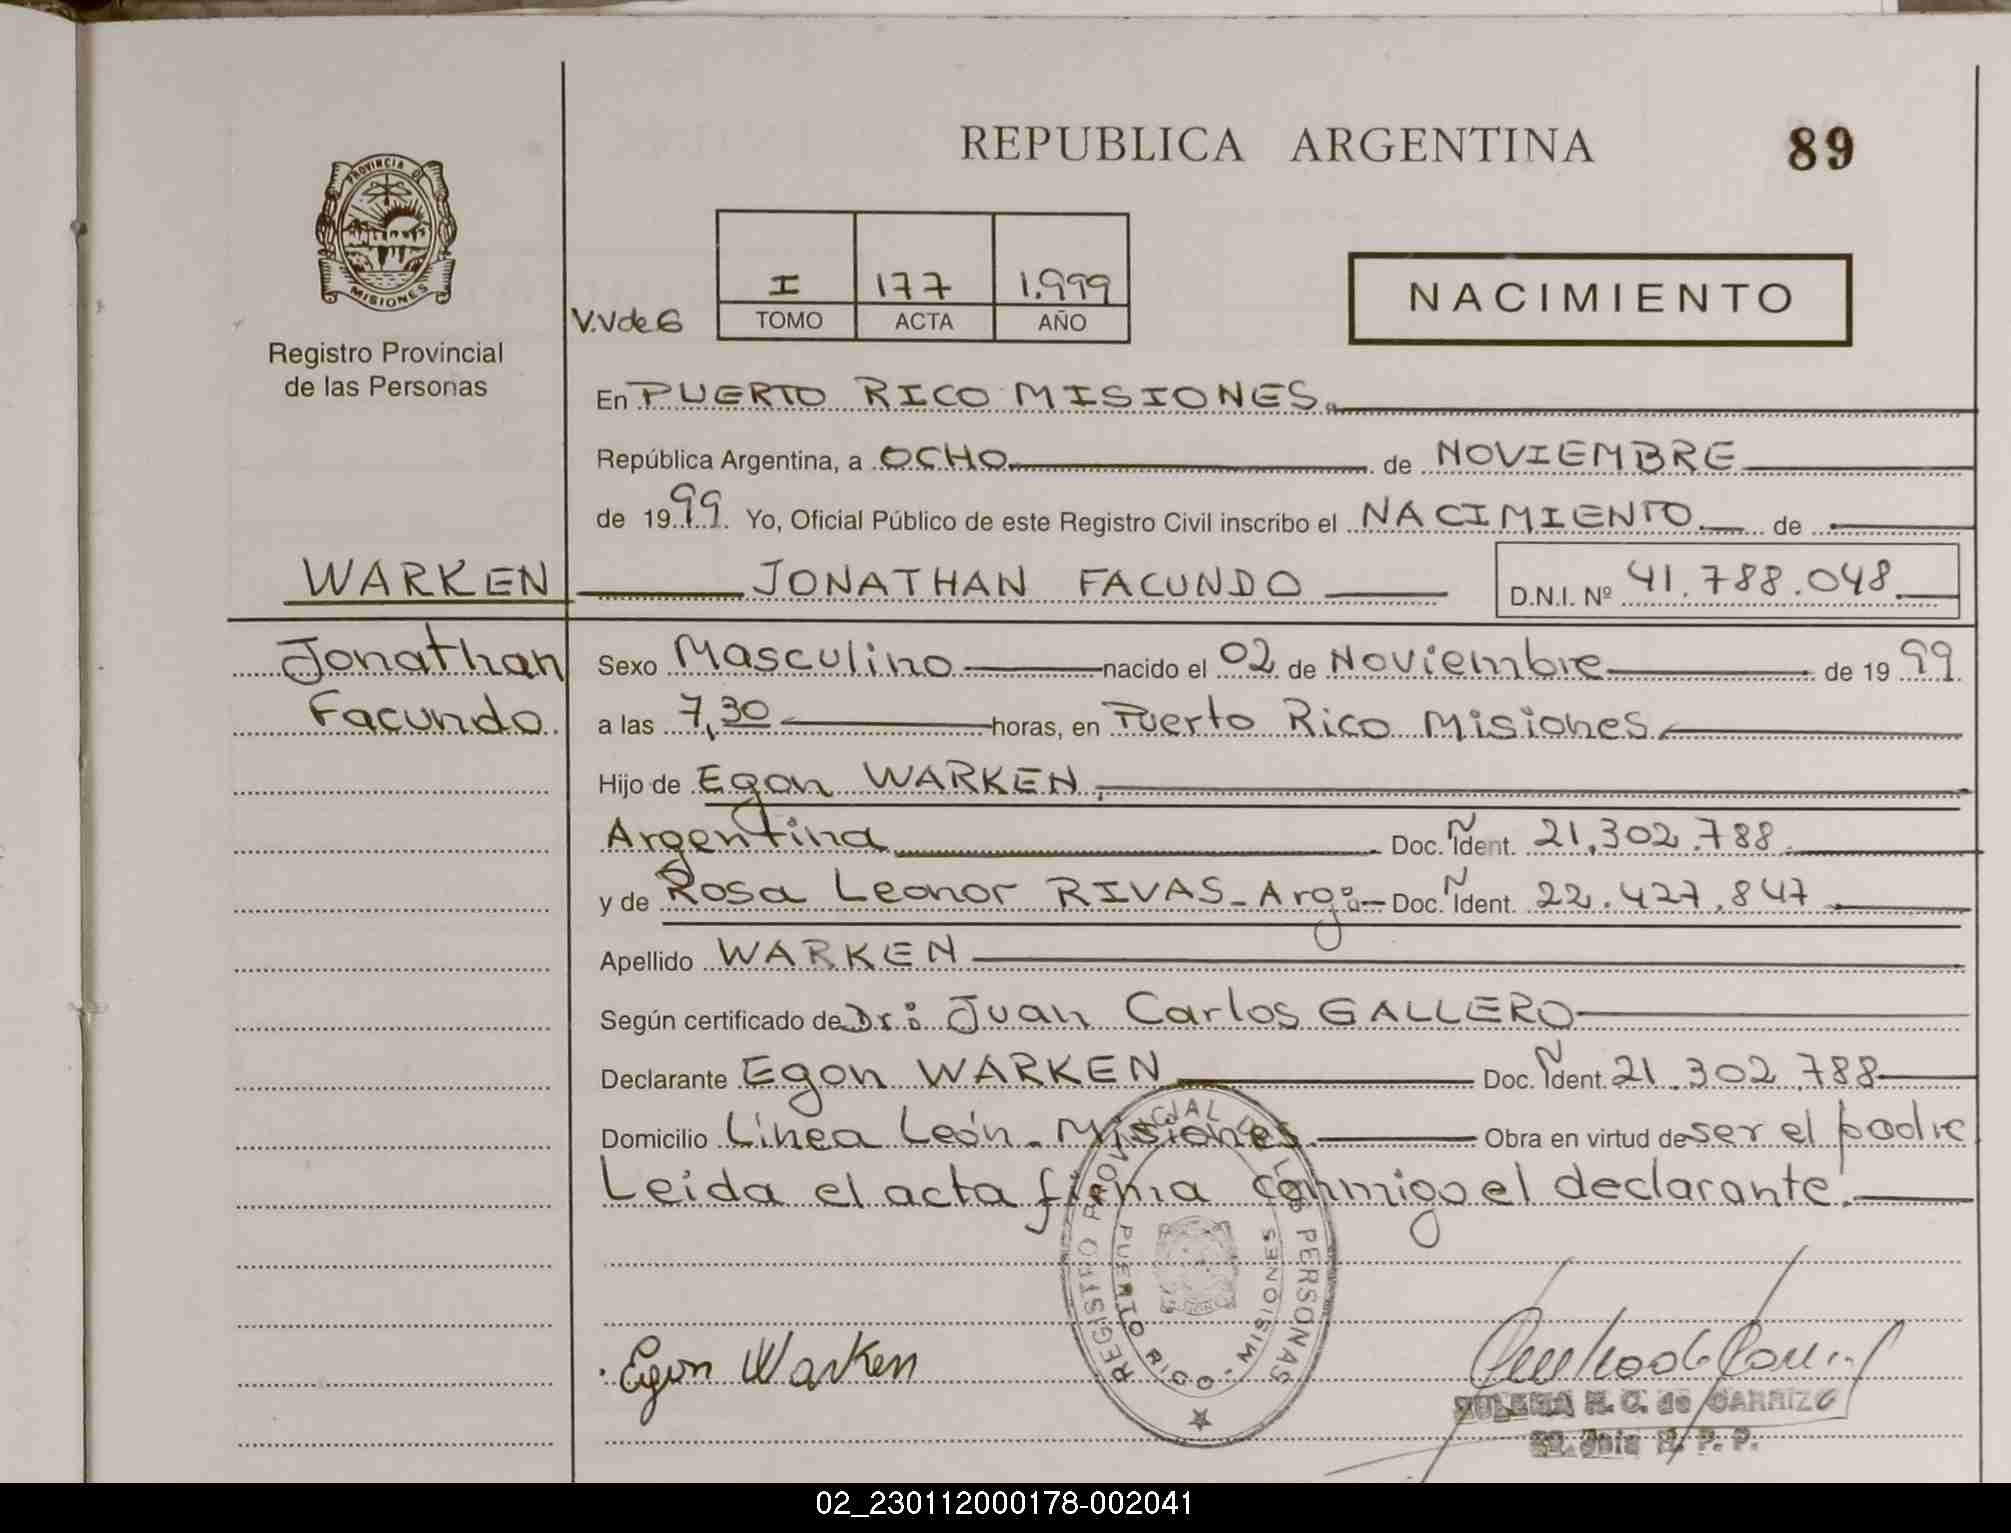 REPUBLICA ARGENTINA
89
PROVINCIA DE
MISIONES
Registro Provincial
de las Personas
V.V de G
I 177 1.999
TOMO ACTA AÑO
NACIMIENTO
En PUERTO RICO MISIONES.
República Argentina, a OCHO de NOVIEMBRE
de 1999. Yo, Oficial Público de este Registro Civil inscribo el NACIMIENTO de
WARKEN JONATHAN FACUNDO D.N.I. Nº 41.788.048
Jonathan
Facundo.
Sexo Masculino nacido el 02 de Noviembre de 1999.
a las 7,30 horas, en Puerto Rico Misiones
Hijo de Egon WARKEN,
Argentina Doc. Ñ Ident. 21.302.788
y de Rosa Leonor RIVAS - Arg: - Doc. Ñ Ident. 22.427.847
Apellido WARKEN
Según certificado de Dr: Juan Carlos GALLERO
Declarante Egon WARKEN Doc. Ñ Ident. 21.302.788
Domicilio Línea León - Misiones. Obra en virtud de ser el padre
Leida el acta firma conmigo el declarante.
REGISTRO PROVINCIAL DE LAS PERSONAS
PUERTO RICO - MISIONES
Egon Warken
ZULEMA H. C. de CARRIZO
R. P. P.
02_230112000178-002041